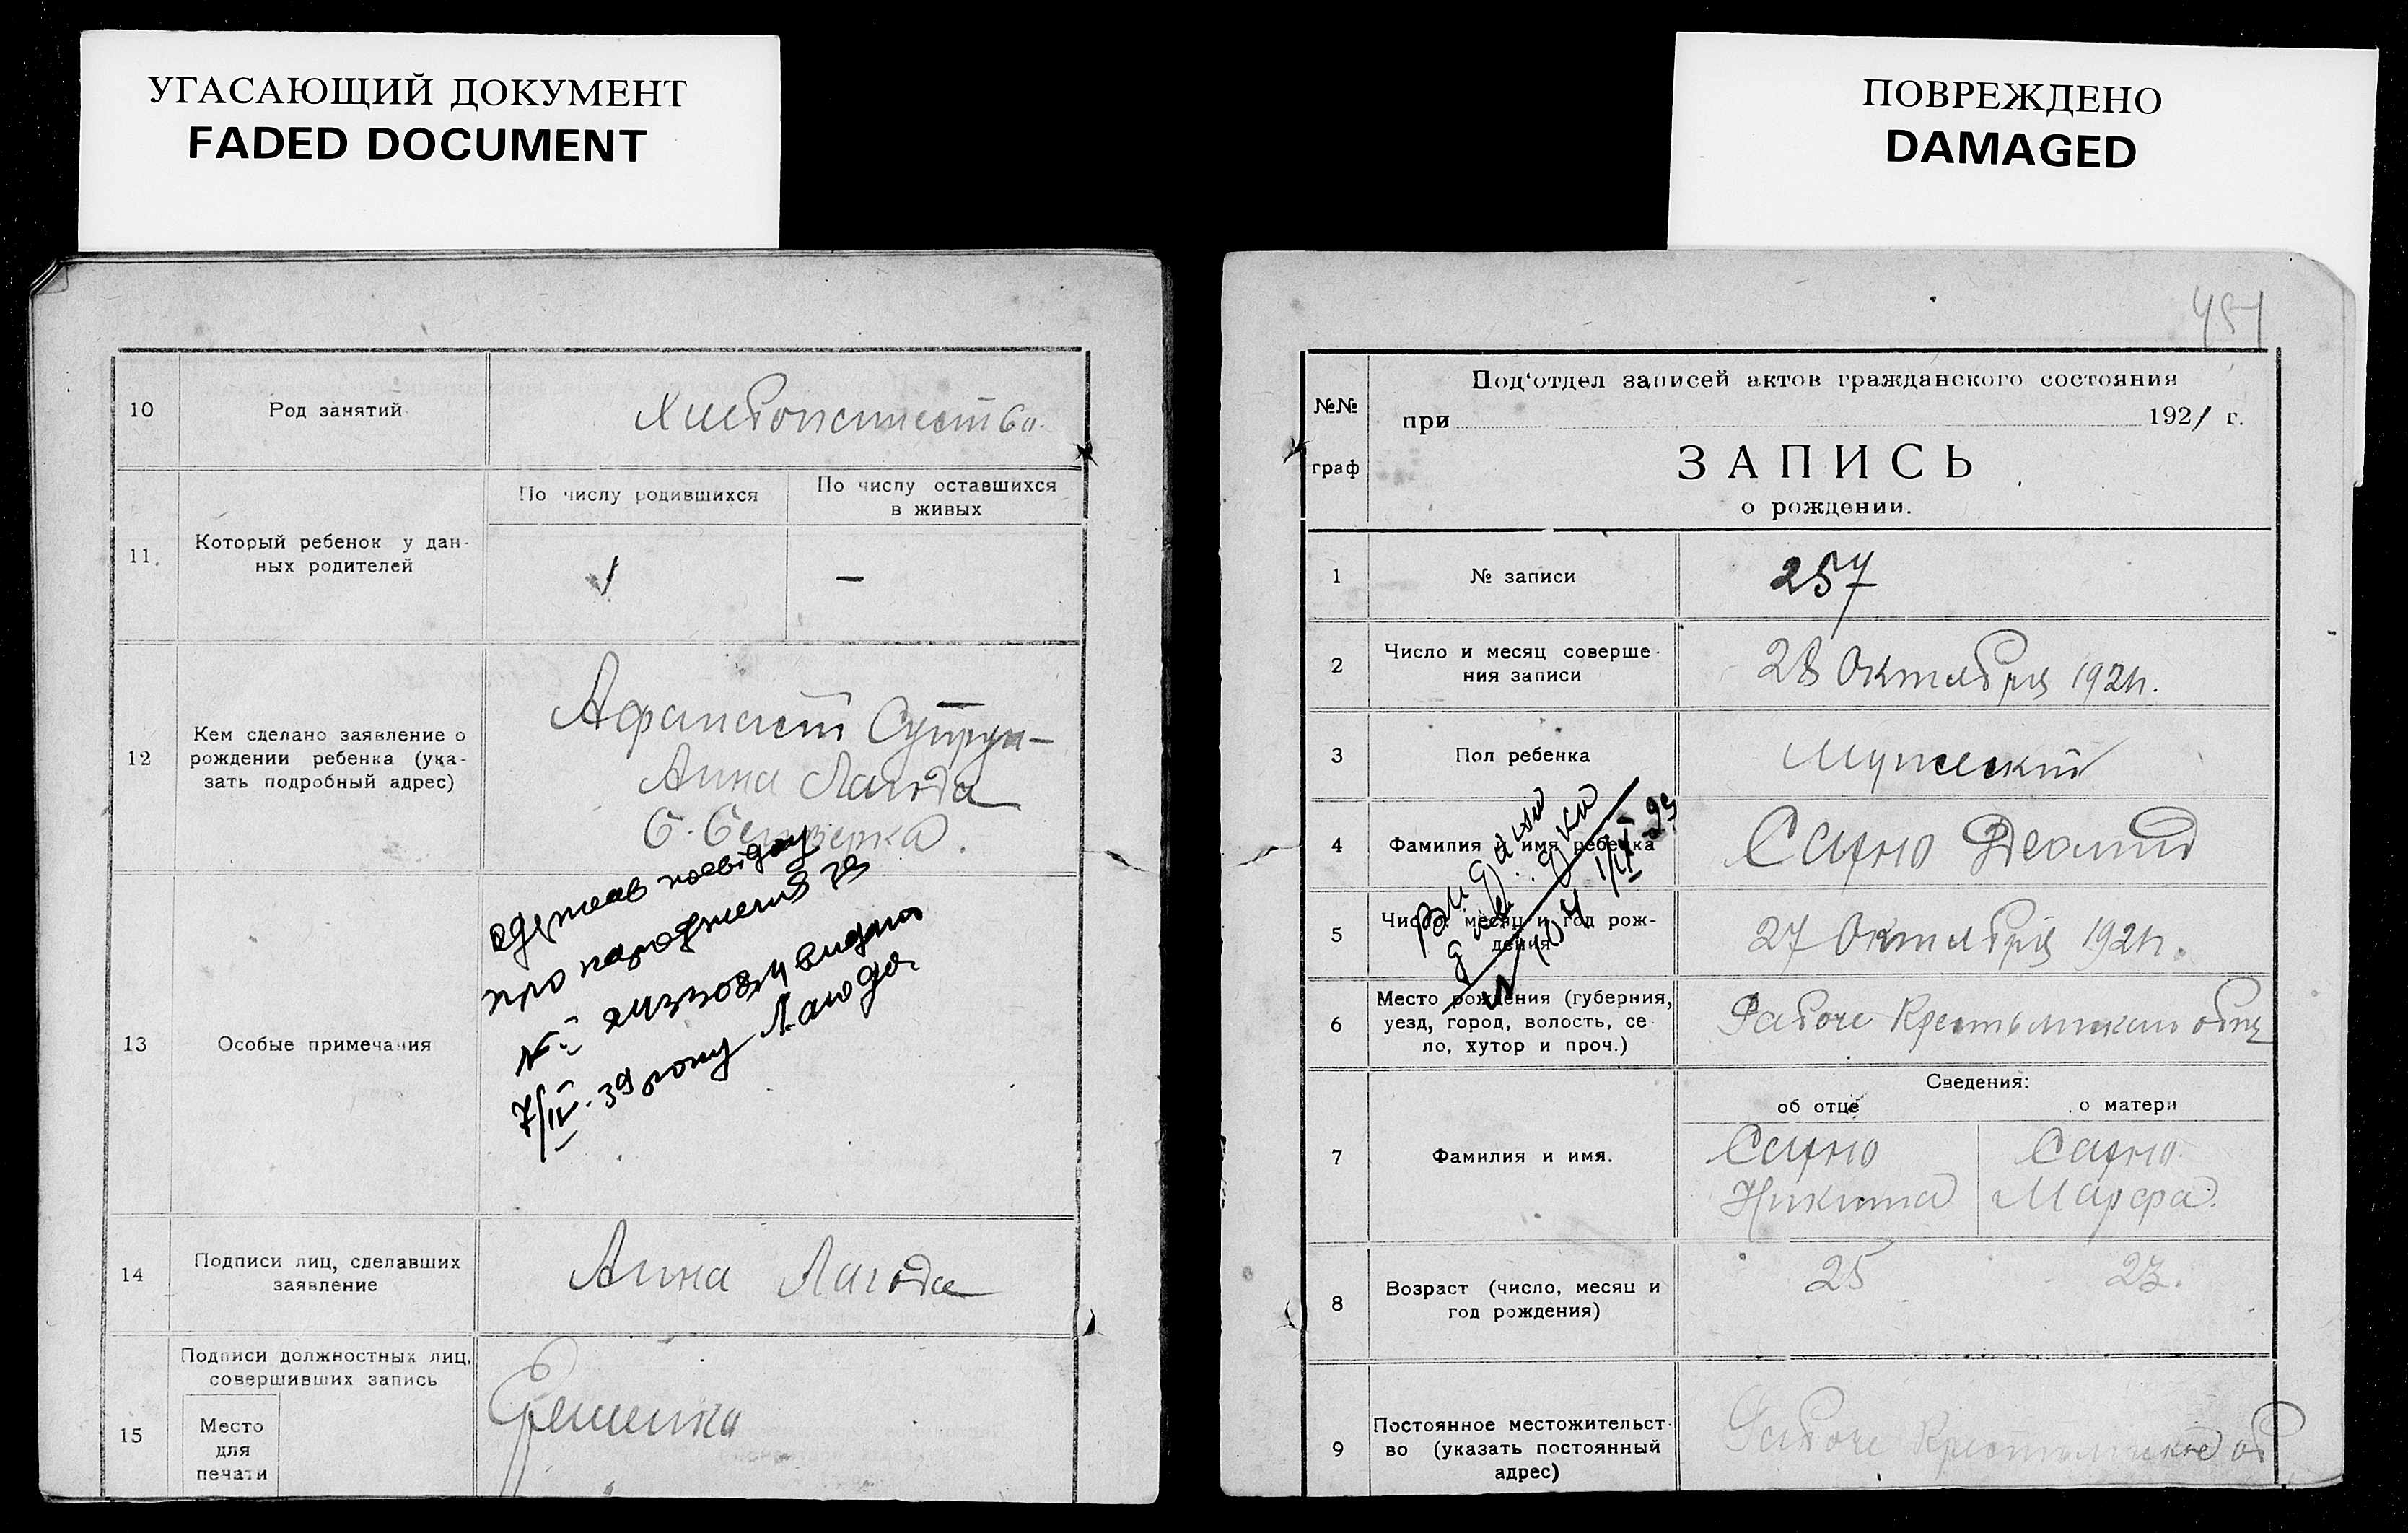 УГАСАЮЩИЙ ДОКУМЕНТ
FADED DOCUMENT
10
Род занятий
11.
Который ребенок у дан-
ных родителей
По числу родившихся
По числу оставшихся
в живых
1
—
12
Кем сделано заявление о
рождении ребенка (ука-
зать подробный адрес)
Афанасий Супрун-
Анна Лагода
13
Особые примечания
про народження за
7/IV-39 року Лагода
14
Подписи лиц, сделавших
заявление
Анна Лагода
15
Подписи должностных лиц,
совершивших запись
Место
для
печати
ПОВРЕЖДЕНО
DAMAGED
451
№№
граф
Под'отдел записей актов гражданского состояния
при 1921 г.
ЗАПИСЬ
о рождении.
1
№ записи
257
2
Число и месяц соверше-
ния записи
28 Октября 1921г.
3
Пол ребенка
Мужеский
4
Фамилия и имя ребенка
5
Число, месяц и год рож-
дения
27 Октября 1921г.
6
Место рождения (губерния,
уезд, город, волость, се-
ло, хутор и проч.)
Рабоче Крестьянская
Сведения:
об отце
о матери
7
Фамилия и имя.
Никита
Марфа.
8
Возраст (число, месяц и
год рождения)
25
23.
9
Постоянное местожительст-
во (указать постоянный
адрес)
Рабоче